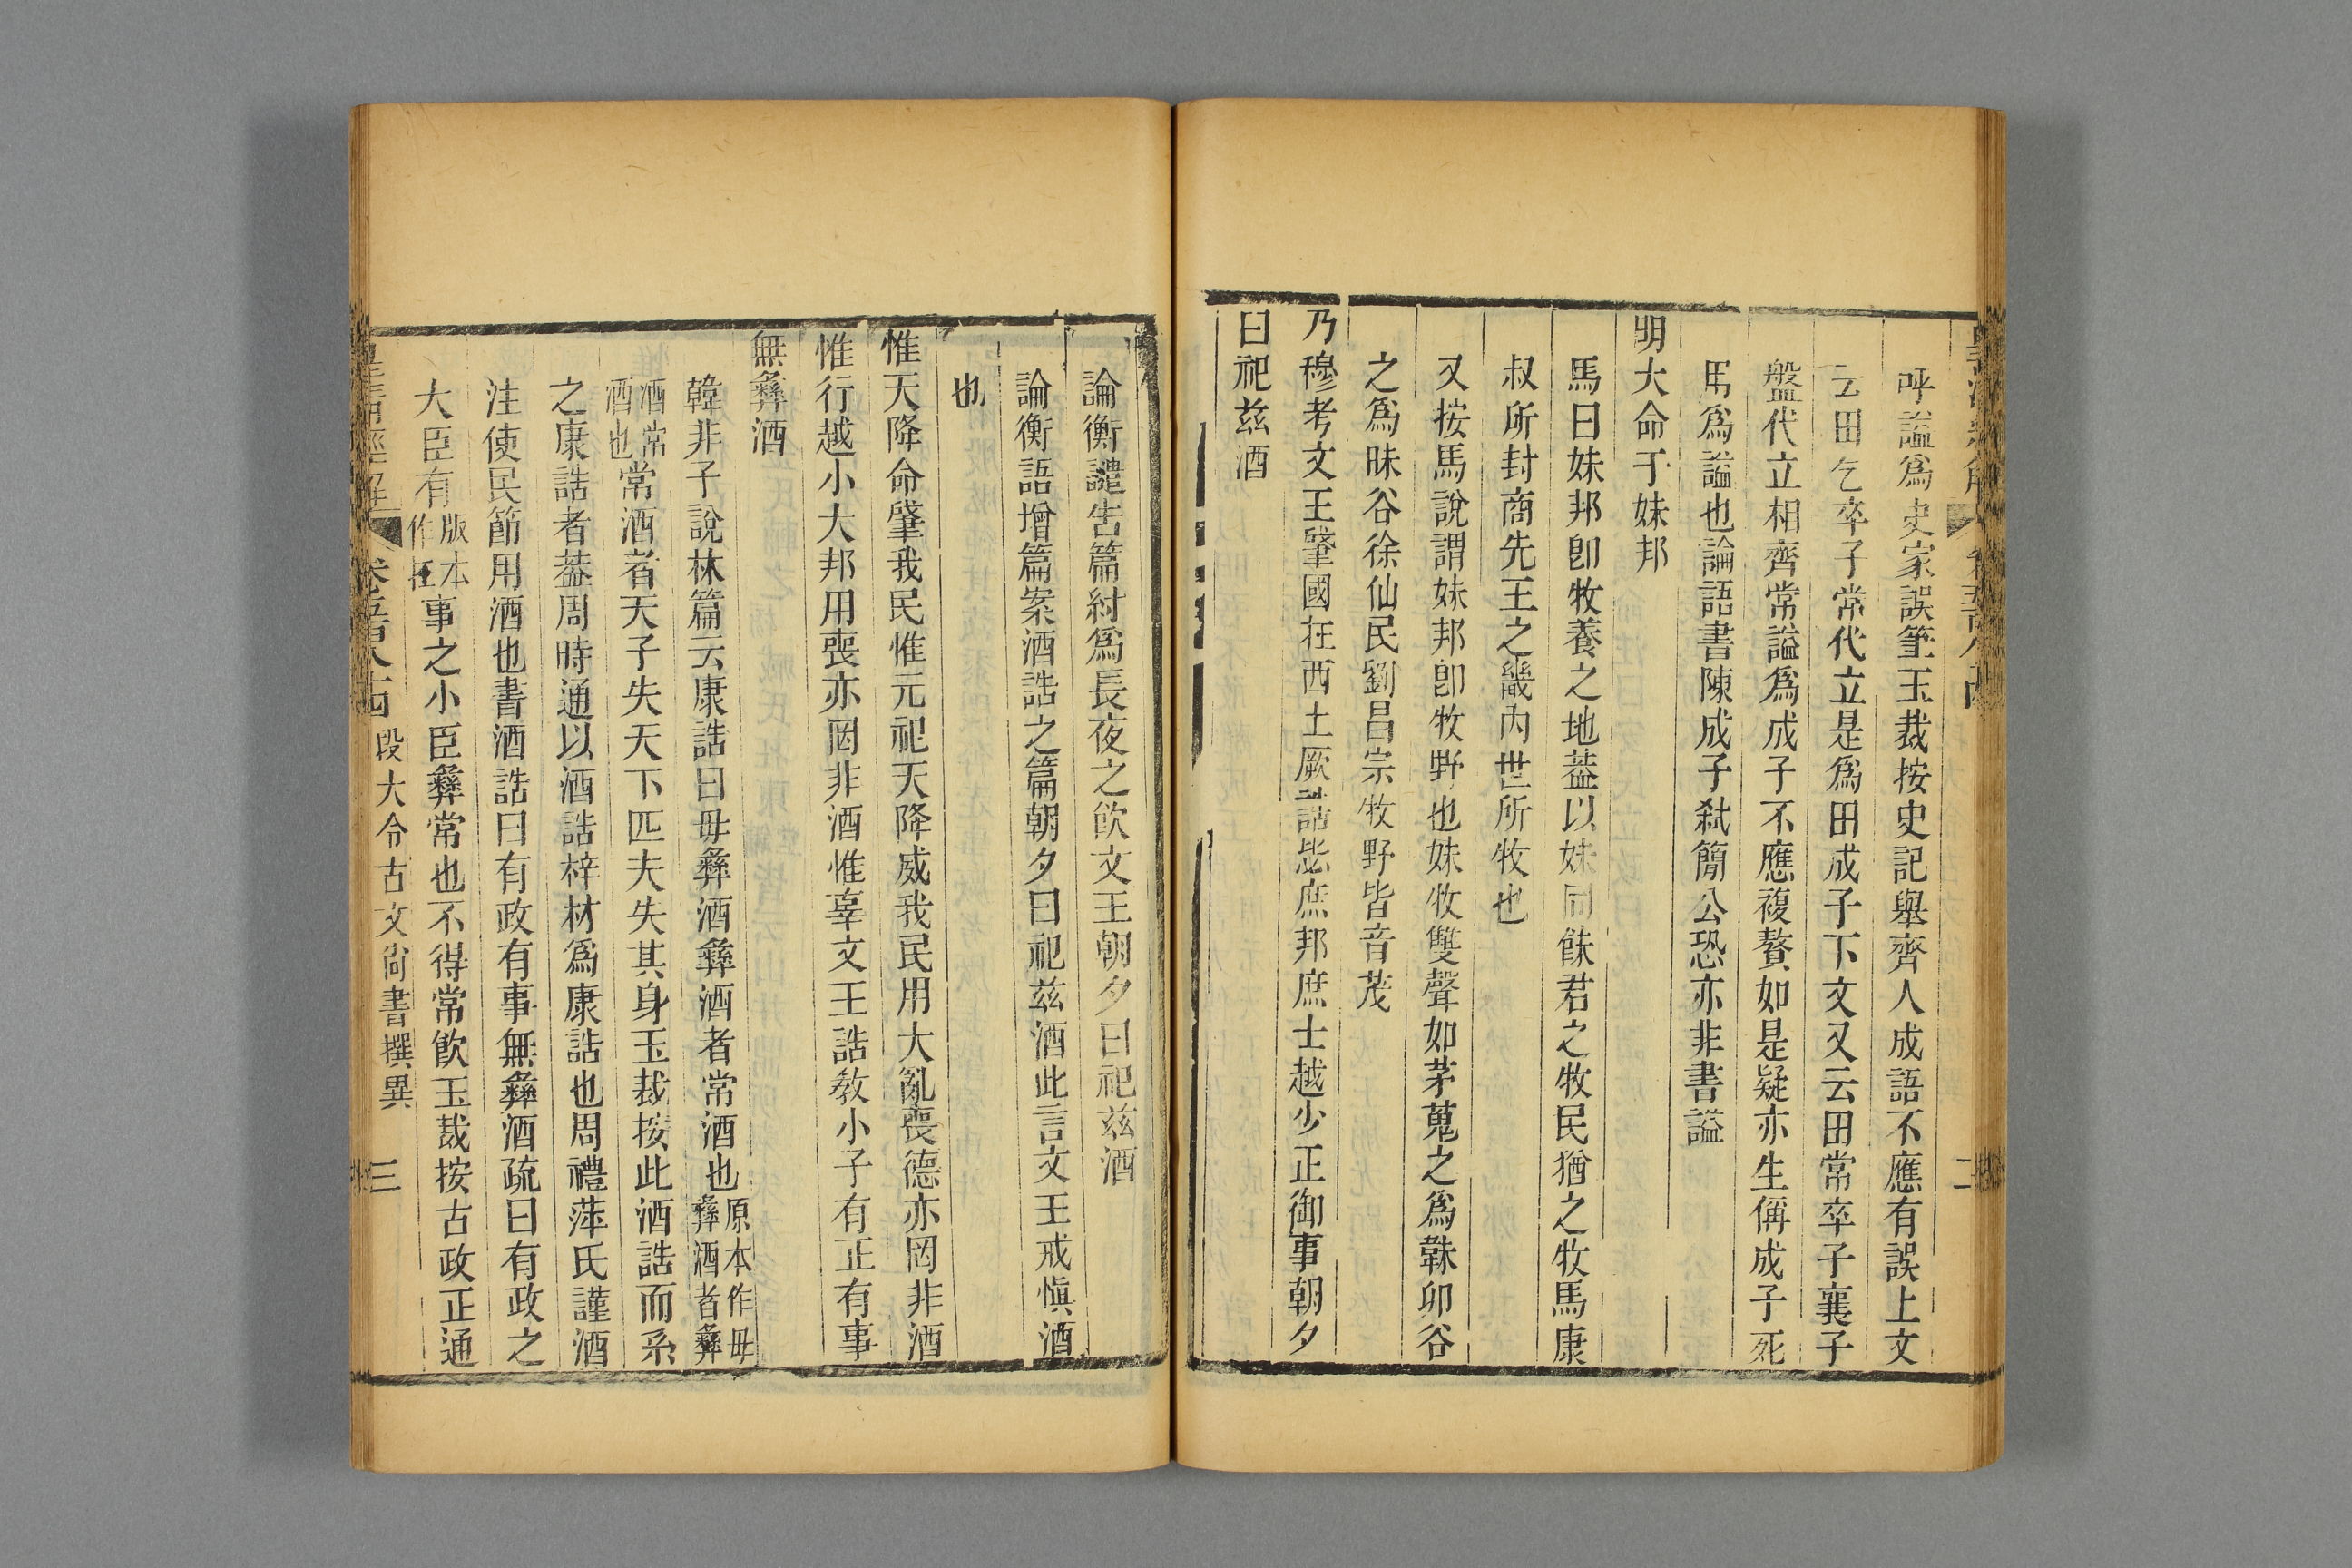 呼謚爲史家誤筆玉裁按史記舉齊人成語不應有誤上文
云田乞卒子常代立是爲田成子下文又云田常卒子襄子
盤代立相齊常謚爲成子不應複贅如是疑亦生偁成子死
馬爲謚也論語書陳成子弒簡公恐亦非書謚
明大命于妹邦
馬曰妹邦卽牧養之地葢以妹同餗君之牧民猶之牧馬康
叔所封商先王之畿內世所牧也
又按馬說謂妹邦卽牧野也妹牧雙聲如茅蒐之爲韎卯谷
之爲昧谷徐仙民劉昌宗牧野皆音茂
乃穆考文王肇國在西土厥誥毖庶邦庶士越少正御事朝夕
曰祀茲酒
論衡譴告篇紂爲長夜之飮文王朝夕曰祀茲酒
論衡語增篇案酒誥之篇朝夕曰祀茲酒此言文王戒愼酒
也
惟天降命肇我民惟元祀天降威我民用大亂喪德亦罔非酒
惟行越小大邦用喪亦罔非酒惟辜文王誥敎小子有正有事
無彝酒
韓非子說林篇云康誥曰毋彝酒彝酒者常酒也原本作毋彝酒者彝
酒常酒也常酒者天子失天下匹夫失其身玉裁按此酒誥而系
之康誥者葢周時通以酒誥梓材爲康誥也周禮萍氏謹酒
注使民節用酒也書酒誥曰有政有事無彝酒疏曰有政之
大臣有版本作在事之小臣彝常也不得常飮玉裁按古政正通
皇淸經解 卷五百八十四 段大令古文尙書撰異 三